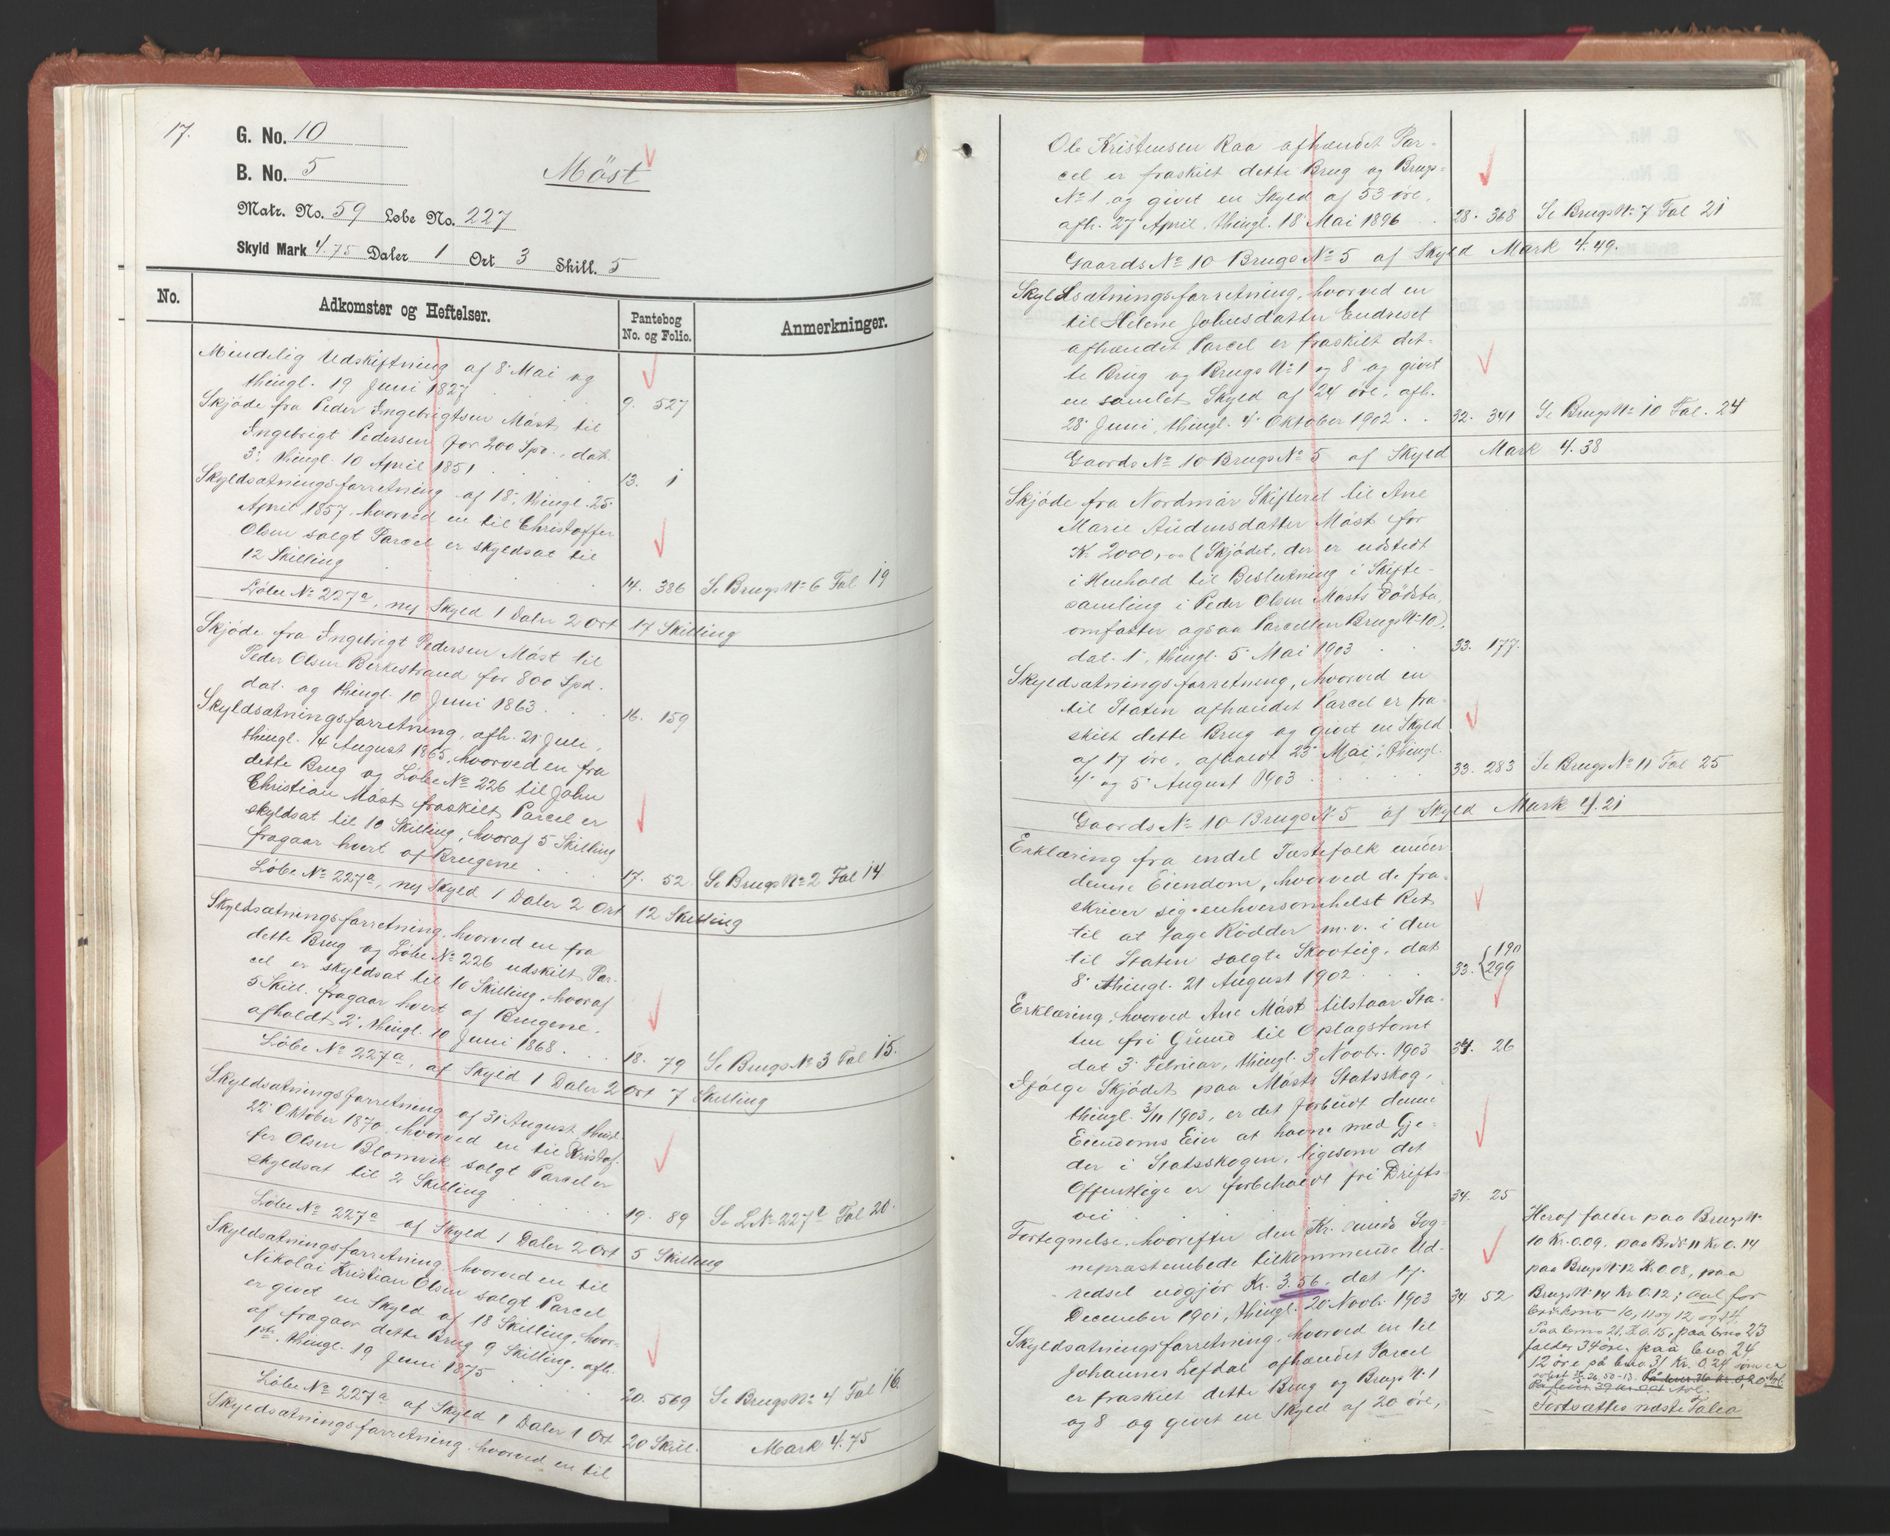 17.
G. No. 10
B. No. 5
Möst
Matr. No. 59 Løbe No. 227
Skyld Mark 4.75 Daler 1 Ort 3 Skill. 5
No. Adkomster og Heftelser. Pantebog No. og Folio. Anmerkninger.
Mindelig Udskiftning af 8' Mai og
thingl. 19 Juni 1827 9. 527
Skjöde fra Peder Ingebrigtsen Möst til
Ingebrigt Pedersen for 200 Spd., dat.
3', thingl. 10 April 1851 13. 1
Skyldsætningsforretning af 18', thingl. 25'
April 1857, hvorved en til Christoffer
Olsen solgt Parcel er skyldsat til
12 Skilling 14. 386 Se Brugs No 6 Fol 19
Löbe No 227a, ny Skyld 1 Daler 2 Ort 17 Skilling
Skjöde fra Ingebrigt Pedersen Möst til
Peder Olsen Birkestrand for 800 Spd.
dat. og thingl. 10 Juni 1863 16. 159
Skyldsætningsforretning, afh. 21' Juli,
thingl. 14 August 1865, hvorved en fra
dette Brug og Löbe No 226 til John
Christian Möst fraskilt Parcel er
skyldsat til 10 Skilling, hvoraf 5 Skilling
fragaar hvert af Brugene 17. 52 Se Brugs No 2 Fol 14
Löbe No 227a, ny Skyld 1 Daler 2 Ort 12 Skilling
Skyldsætningsforretning, hvorved en fra
dette Brug og Löbe No 226 udskilt Par-
cel er skyldsat til 10 Skilling, hvoraf
5 Skill. fragaar hvert af Brugene,
afholdt 2', thingl. 10 Juni 1868 18. 79 Se Brugs No 3 Fol 15.
Löbe No 227a, af Skyld 1 Daler 2 Ort 7 Skilling
Skyldsætningsforretning af 31' August, thingl.
22' Oktober 1870, hvorved en til Kristof-
fer Olsen Blomvik solgt Parcel er
skyldsat til 2 Skilling 19 89 Se L No 227 Fol 20.
Löbe No 227a af Skyld 1 Daler 2 Ort 5 Skilling
Skyldsætningsforretning, hvorved en til
Nikolai Kristian Olsen solgt Parcel
er givet en Skyld af 18 Skilling, hvor-
af fragaar dette Brug 9 Skilling, afh.
1ste, thingl. 19 Juni 1875 20. 569 Se Brugs No 4 Fol 16.
Löbe No 227a af Skyld 1 Daler 1 Ort 20 Skill. Mark 4.75
Skyldsætningsforretning, hvorved en til
Ole Kristensen Raa afhændet Par-
cel er fraskilt dette Brug og Brugs-
No 1, og givet en Skyld af 53 öre,
afh. 27 April, thingl. 18 Mai 1896 28. 368 Se Brugs No 7 Fol 21
Gaards No 10 Brugs No 5 af Skyld Mark 4.49.
Skyldsætningsforretning, hvorved en
til Helene Johnsdatter Endreset
afhændet Parcel er fraskilt det-
te Brug og Brugs No 1 og 8 og givet
en samlet Skyld af 24 öre, afh.
28' Juni, thingl. 4' Oktober 1902 32. 341 Se Brugs No 10 Fol. 24
Gaards No 10 Brugs No 5 af Skyld Mark 4.38
Skjöde fra Nordmör Skifteret til Ane
Marie Audensdatter Möst for
Kr. 2000,00 (Skjödet, der er udstedt
i Henhold til Beslutning i Skifte-
samling i Peder Olsen Mösts Dödsbo,
omfatter ogsaa Parcellen Brugs No 10),
dat. 1', thingl. 5' Mai 1903 33. 177.
Skyldsætningsforretning, hvorved en
til Staten afhændet Parcel er fra-
skilt dette Brug og givet en Skyld
af 17 öre, afholdt 23' Mai, thingl.
4' og 5' August 1903 33. 283 Se Brugs No 11 Fol 25
Gaards No 10 Brugs No 5 af Skyld Mark 4.21
Erklæring fra endel Tæstefolk under
denne Eiendom, hvorved de fra-
skriver sig enhversomhelst Ret
til at tage Rödder m.v. i den
til Staten solgte Skovteig, dat
8' thingl. 21 August 1902 33. {190 299
Erklæring, hvorved Ane Möst tilstaar Sta-
ten fri Grund til Oplagstomt
dat 3' Februar, thingl. 3 Novbr. 1903 34. 26
Ifölge Skjödet paa Mösts Statsskog,
thingl. 3/11 1903, er det forbudt denne
Eiendoms Eier at havne med Gje-
der i Statsskogen, ligesom det
Offentlige er forbeholdt fri Drifts-
vei 34. 25
Fortegnelse, hvorefter den Kr. sunds Sog-
nepræstembede tilkommende Ud-
redsel udgjör Kr. 3.56, dat 17
December 1901, thingl. 20 Novbr. 1903 34. 52
Heraf falder paa Brugs No
10 Kr. 0.09, paa Br. No 11 Kr 0.14
paa Brugs No 12 Kr. 0.08, paa
Brugs No 14 Kr 0.12; avl. for
10, 11 og 12 og 14.
Paa bno 21. K 0.15, paa bno 23
falder 34 öre, paa bno 24
12 öre på bno 31 Kr. 0.24 som er
Skyldsætningsforretning, hvorved en til
Johannes Lefdal afhændet Parcel
er fraskilt dette Brug og Brugs No 1
og 8 og givet en Skyld af 20 öre,
Fortsættes næste Folio